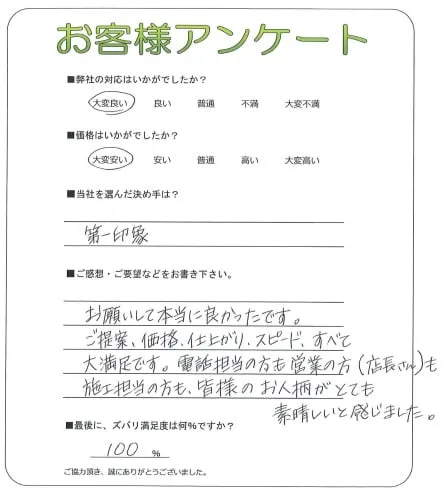 お客様アンケート
■弊社の対応はいかがでしたか？
大変良い 良い 普通 不満 大変不満
■価格はいかがでしたか？
大変安い 安い 普通 高い 大変高い
■当社を選んだ決め手は？
第一印象
■ご感想・ご要望などをお書き下さい。
お願いして本当に良かったです。
ご提案、価格、仕上がり、スピード、すべて
大満足です。電話担当の方も営業の方(店長さん)も
施工担当の方も、皆様のお人柄がとても
素晴しいと感じました。
■最後に、ズバリ満足度は何%ですか？
100 %
ご協力頂き、誠にありがとうございました。